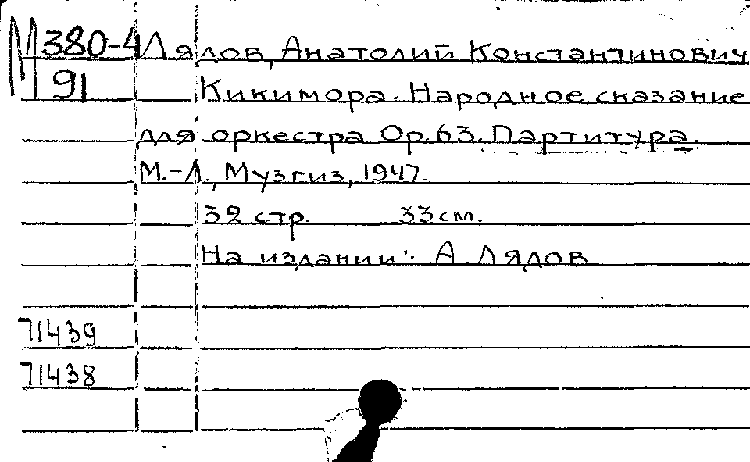 М 380-4 Лядов, Анатолий Константинович
91 Кикимора. Народное сказание
для оркестра Ор.63. Партитура.
М.-Л., Музгиз, 1947.
32 стр. 33 см.
На издании: А. Лядов
71439
71438